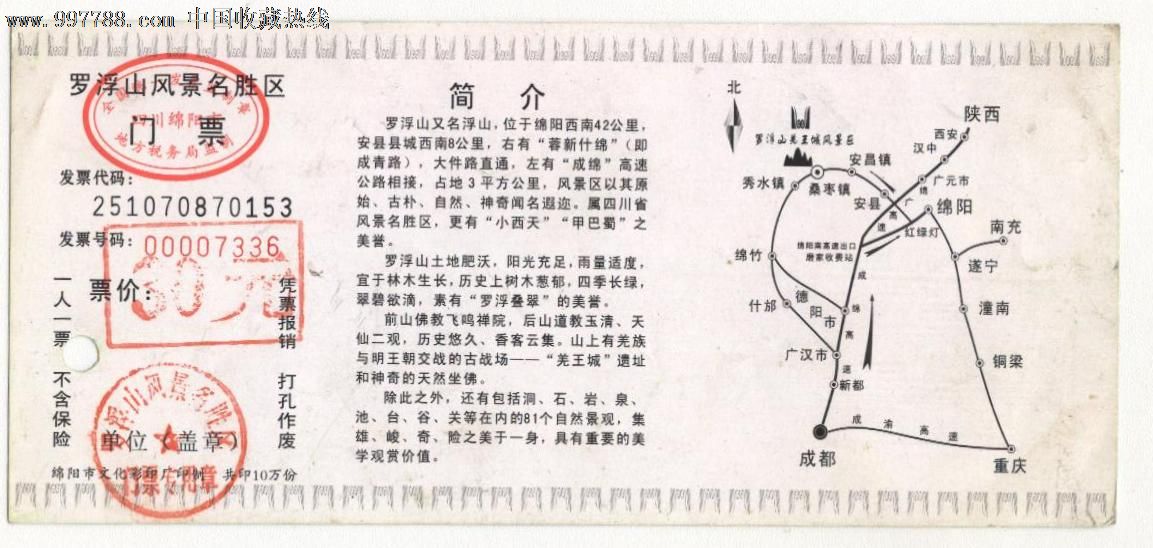 www.997788.com 中国收藏热线
罗浮山风景名胜区
门 票
四川绵阳市
地方税务局监制
发票代码:
251070870153
发票号码: 00007336
票价: 30元
一人一票 不含保险
凭票报销 打孔作废
罗浮山风景名胜区
单位(盖章)
门票专用章
绵阳市文化彩印厂印制 共印10万份
简 介
罗浮山又名浮山,位于绵阳西南42公里,
安县县城西南8公里,右有“蓉新什绵”(即
成青路),大件路直通,左有“成绵”高速
公路相接,占地3平方公里,风景区以其原
始、古朴、自然、神奇闻名遐迩。属四川省
风景名胜区,更有“小西天”“甲巴蜀”之
美誉。
罗浮山土地肥沃,阳光充足,雨量适度,
宜于林木生长,历史上树木葱郁,四季长绿,
翠碧欲滴,素有“罗浮叠翠”的美誉。
前山佛教飞鸣禅院,后山道教玉清、天
仙二观,历史悠久、香客云集。山上有羌族
与明王朝交战的古战场——“羌王城”遗址
和神奇的天然坐佛。
除此之外,还有包括洞、石、岩、泉、
池、台、谷、关等在内的81个自然景观,集
雄、峻、奇、险之美于一身,具有重要的美
学观赏价值。
北
罗浮山羌王城风景区
陕西
西安
汉中
广元市
绵广高速
安昌镇
桑枣镇
秀水镇
安县
绵阳
红绿灯
南充
绵阳南高速出口
磨家收费站
绵竹
遂宁
什邡
德阳市
潼南
成绵高速
广汉市
铜梁
新都
成渝高速
成都
重庆